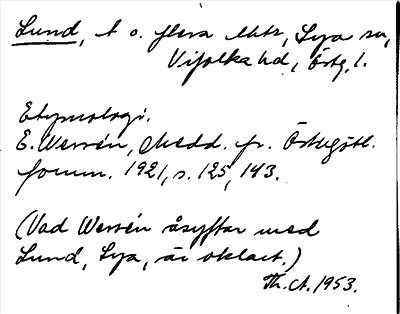 Lund, t o. flera ställen, Lysa sn,
Vifolka hd, Östg. l.
Etymologi.
E. Wessén, Medd. fr. Östergötl.
fornm. 1921, s. 125, 143.
(Vad Wessén åsyftar med
Lund, Sya, är oklart.)
Th. A. 1953.